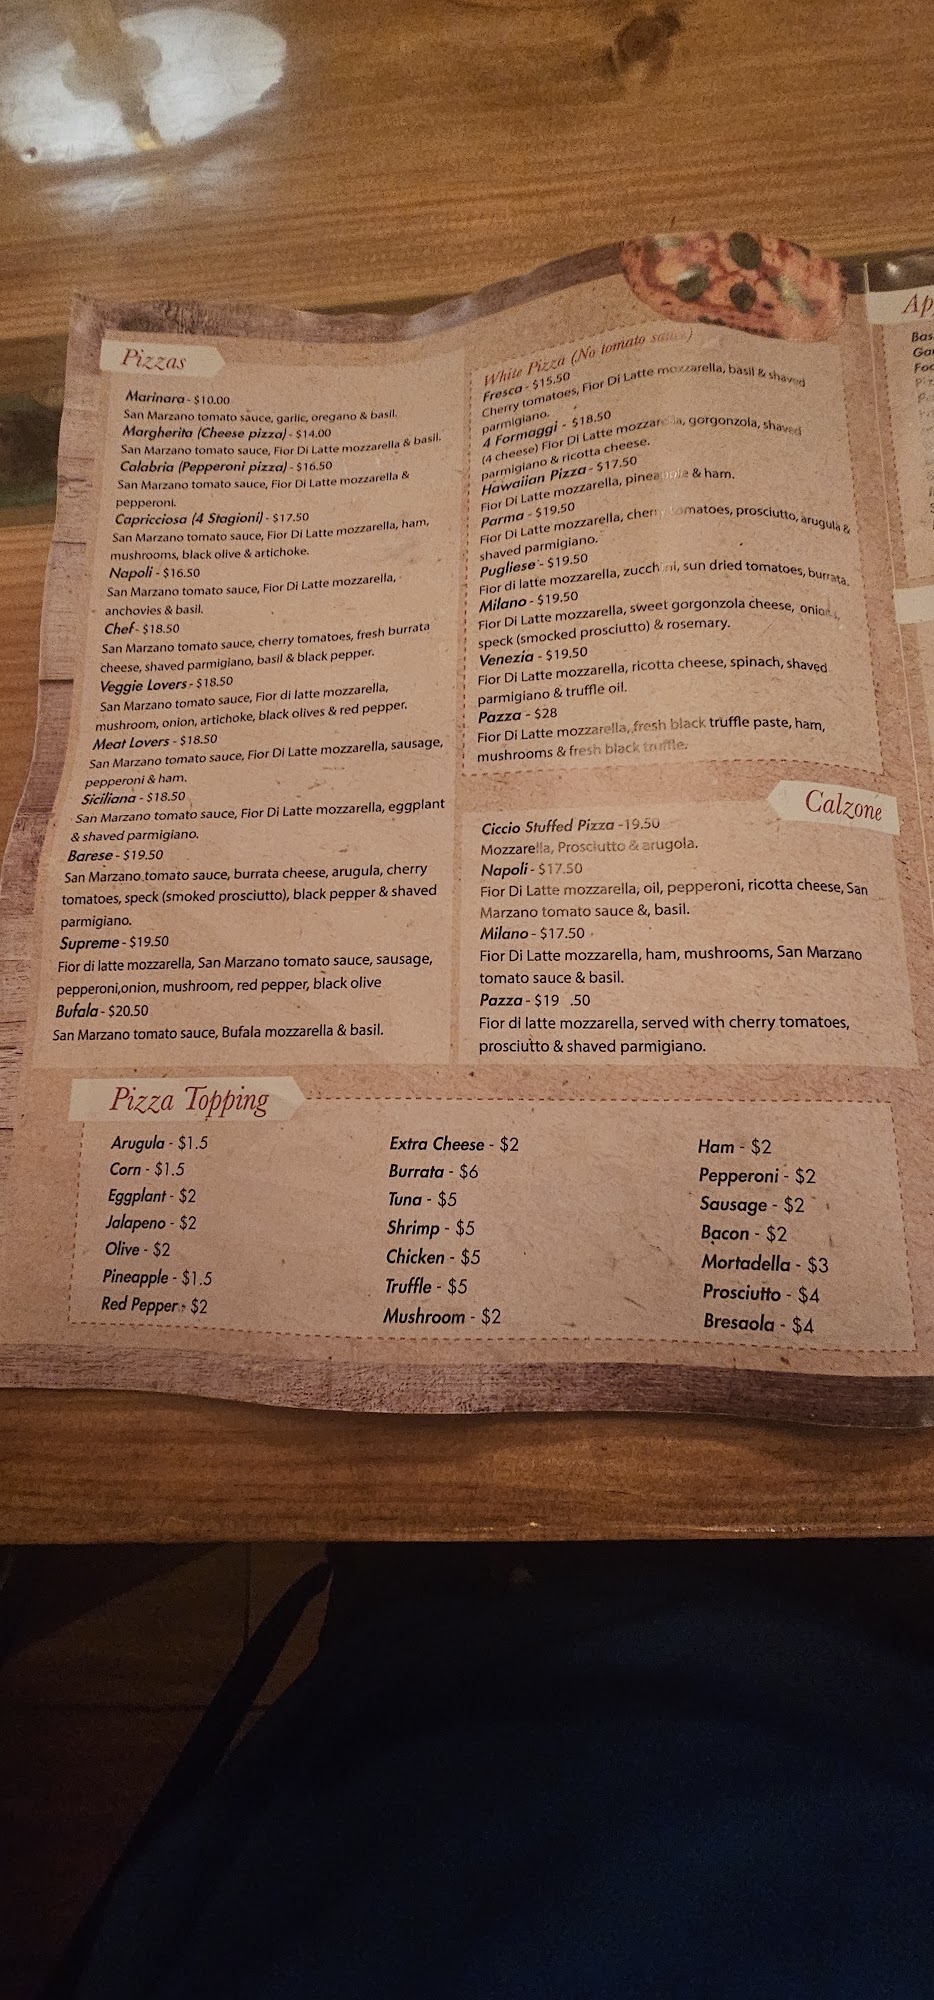 Pizzas
Marinara - $10.00
San Marzano tomato sauce, garlic, oregano & basil.
Margherita (Cheese pizza) - $14.00
San Marzano tomato sauce, Fior Di Latte mozzarella & basil.
Calabria (Pepperoni pizza) - $16.50
San Marzano tomato sauce, Fior Di Latte mozzarella &
pepperoni.
Capricciosa (4 Stagioni) - $17.50
San Marzano tomato sauce, Fior Di Latte mozzarella, ham,
mushrooms, black olive & artichoke.
Napoli - $16.50
San Marzano tomato sauce, Fior Di Latte mozzarella,
anchovies & basil.
Chef - $18.50
San Marzano tomato sauce, cherry tomatoes, fresh burrata
cheese, shaved parmigiano, basil & black pepper.
Veggie Lovers - $18.50
San Marzano tomato sauce, Fior di latte mozzarella,
mushroom, onion, artichoke, black olives & red pepper.
Meat Lovers - $18.50
San Marzano tomato sauce, Fior Di Latte mozzarella, sausage,
pepperoni & ham.
Siciliana - $18.50
San Marzano tomato sauce, Fior Di Latte mozzarella, eggplant
& shaved parmigiano.
Barese - $19.50
San Marzano tomato sauce, burrata cheese, arugula, cherry
tomatoes, speck (smoked prosciutto), black pepper & shaved
parmigiano.
Supreme - $19.50
Fior di latte mozzarella, San Marzano tomato sauce, sausage,
pepperoni,onion, mushroom, red pepper, black olive
Bufala - $20.50
San Marzano tomato sauce, Bufala mozzarella & basil.
White Pizza (No tomato sauce)
Fresca - $15.50
Cherry tomatoes, Fior Di Latte mozzarella, basil & shaved
parmigiano.
4 Formaggi - $18.50
(4 cheese) Fior Di Latte mozzarella, gorgonzola, shaved
parmigiano & ricotta cheese.
Hawaiian Pizza - $17.50
Fior Di Latte mozzarella, pineapple & ham.
Parma - $19.50
Fior Di Latte mozzarella, cherry tomatoes, prosciutto, arugula &
shaved parmigiano.
Pugliese - $19.50
Fior di latte mozzarella, zucchini, sun dried tomatoes, burrata.
Milano - $19.50
Fior Di Latte mozzarella, sweet gorgonzola cheese, onions,
speck (smocked prosciutto) & rosemary.
Venezia - $19.50
Fior Di Latte mozzarella, ricotta cheese, spinach, shaved
parmigiano & truffle oil.
Pazza - $28
Fior Di Latte mozzarella, fresh black truffle paste, ham,
mushrooms & fresh black truffle.
Calzone
Ciccio Stuffed Pizza -19.50
Mozzarella, Prosciutto & arugola.
Napoli - $17.50
Fior Di Latte mozzarella, oil, pepperoni, ricotta cheese, San
Marzano tomato sauce &, basil.
Milano - $17.50
Fior Di Latte mozzarella, ham, mushrooms, San Marzano
tomato sauce & basil.
Pazza - $19 .50
Fior di latte mozzarella, served with cherry tomatoes,
prosciutto & shaved parmigiano.
Pizza Topping
Arugula - $1.5
Corn - $1.5
Eggplant - $2
Jalapeno - $2
Olive - $2
Pineapple - $1.5
Red Pepper - $2
Extra Cheese - $2
Burrata - $6
Tuna - $5
Shrimp - $5
Chicken - $5
Truffle - $5
Mushroom - $2
Ham - $2
Pepperoni - $2
Sausage - $2
Bacon - $2
Mortadella - $3
Prosciutto - $4
Bresaola - $4